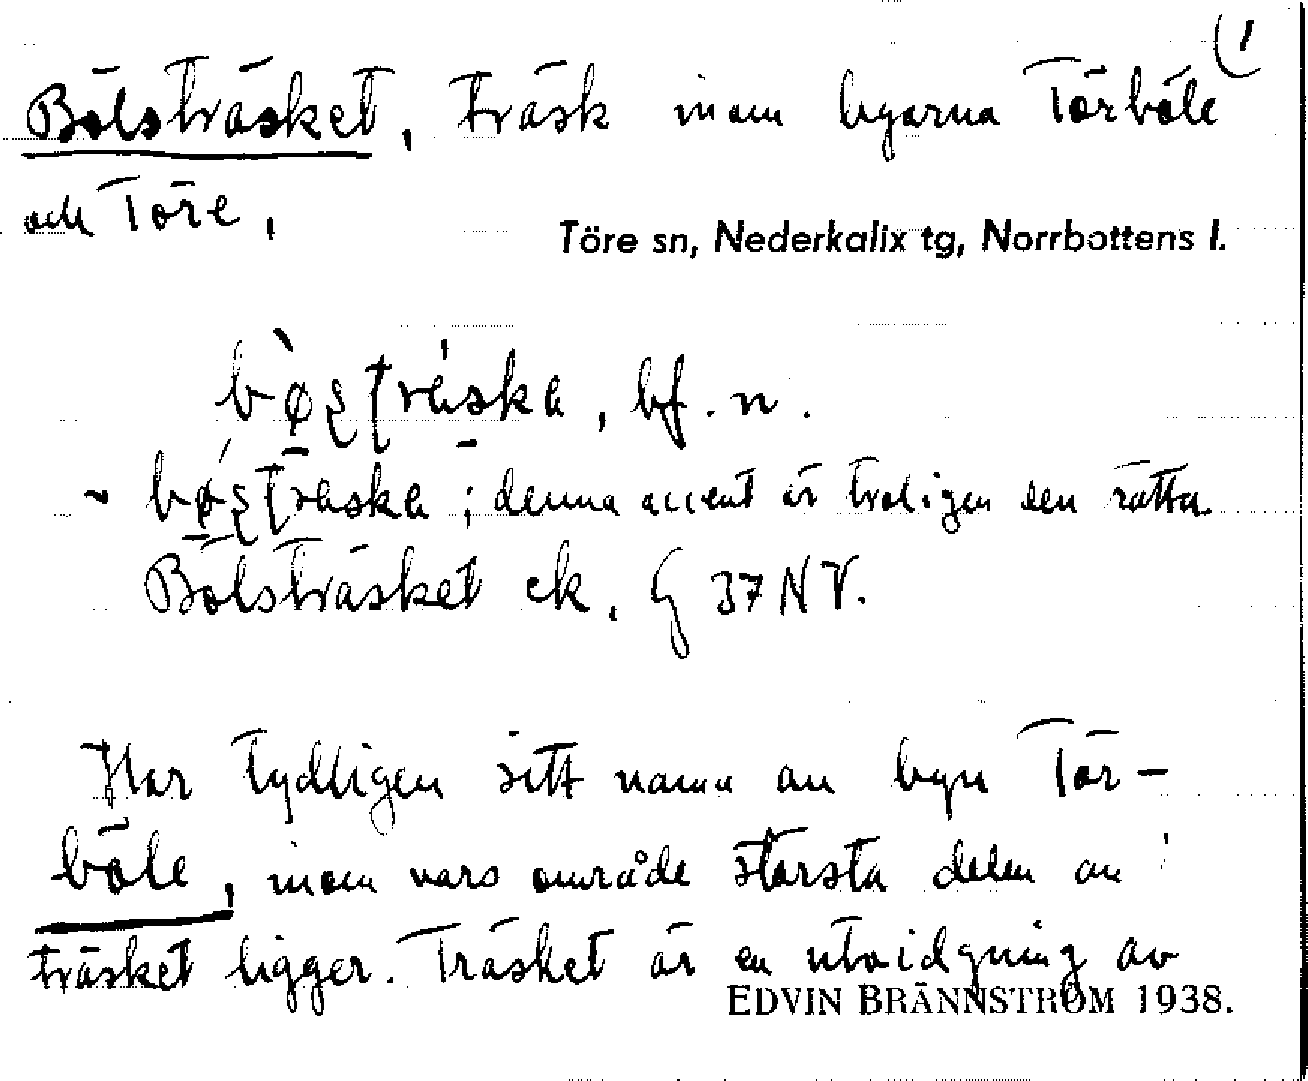 (1
Bölsträsket, träsk inom byarna Törböle
och Töre,
Töre sn, Nederkalix tg, Norrbottens l.
bf. n.
~ ; denna accent är troligen den rätta.
Bölsträsket ek. G 37 NV.
Har tydligen sitt namn av byn Tör-
böle, inom vars område största delen av
träsket ligger. Träsket är en utvidgning av
EDVIN BRÄNNSTRÖM 1938.